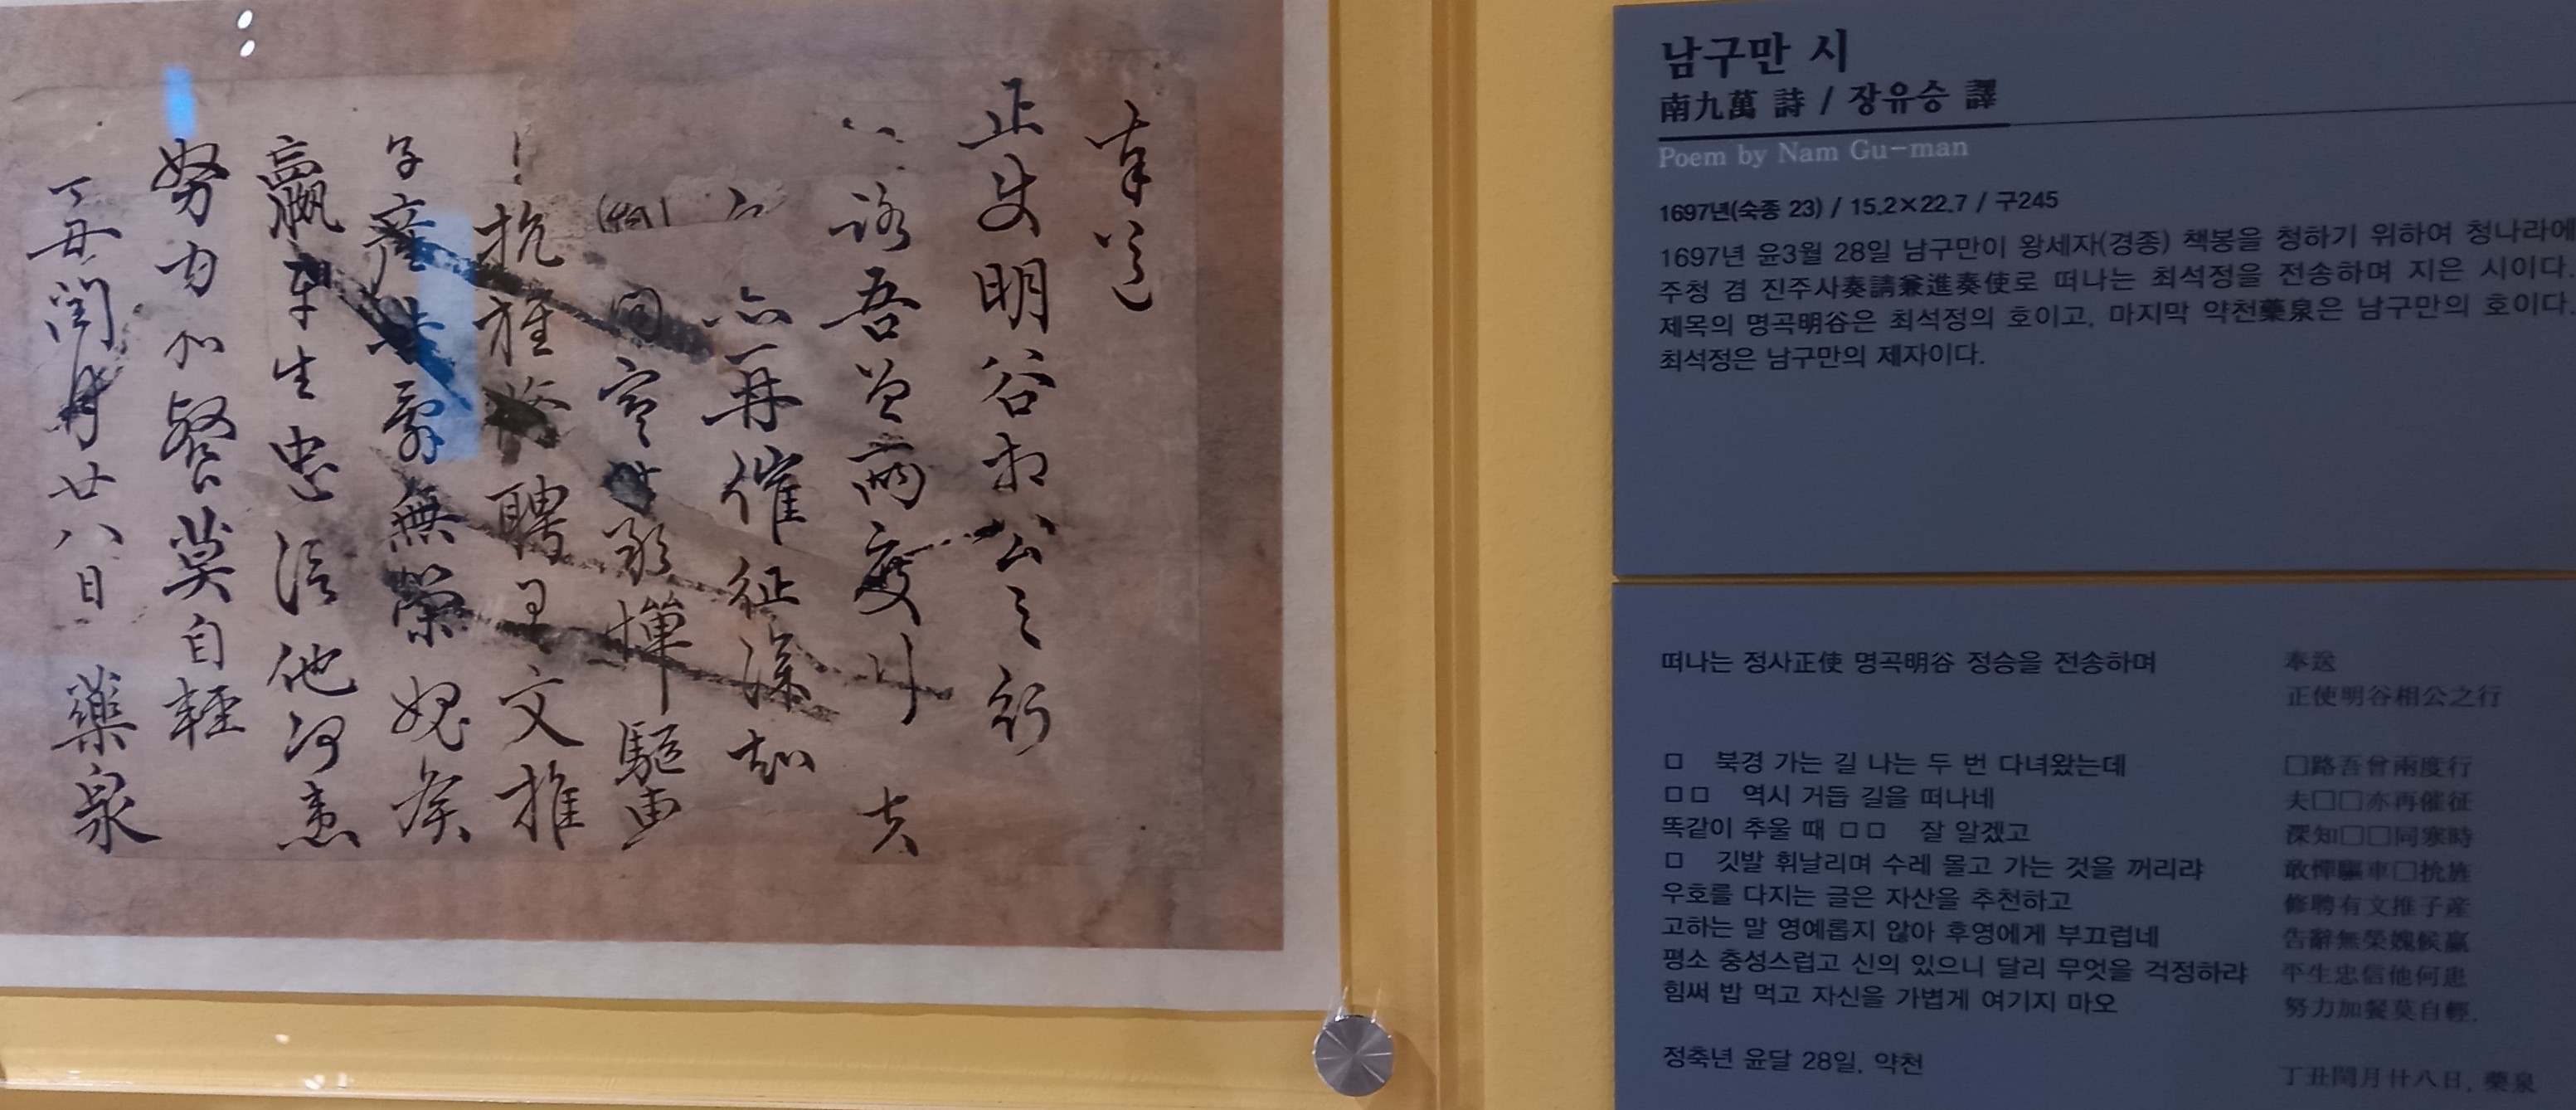 奉送
正使明谷相公之行
路吾曾兩度行 夫
亦再催征深知
同寒時敢憚驅車
抗旌修聘有文推
子產告辭無榮媿侯
嬴平生忠信他何患
努力加餐莫自輕
丁丑閏月廿八日 藥泉
남구만 시
南九萬 詩 / 장유승 譯
Poem by Nam Gu-man
1697년(숙종 23) / 15.2×22.7 / 구245
1697년 윤3월 28일 남구만이 왕세자(경종) 책봉을 청하기 위하여 청나라에
주청 겸 진주사奏請兼進奏使로 떠나는 최석정을 전송하며 지은 시이다.
제목의 명곡明谷은 최석정의 호이고, 마지막 약천藥泉은 남구만의 호이다.
최석정은 남구만의 제자이다.
떠나는 정사正使 명곡明谷 정승을 전송하며
□ 북경 가는 길 나는 두 번 다녀왔는데
□□ 역시 거듭 길을 떠나네
똑같이 추울 때 □□ 잘 알겠고
□ 깃발 휘날리며 수레 몰고 가는 것을 꺼리랴
우호를 다지는 글은 자산을 추천하고
고하는 말 영예롭지 않아 후영에게 부끄럽네
평소 충성스럽고 신의 있으니 달리 무엇을 걱정하랴
힘써 밥 먹고 자신을 가볍게 여기지 마오
정축년 윤달 28일, 약천
奉送
正使明谷相公之行
□路吾曾兩度行
夫□□亦再催征
深知□□同寒時
敢憚驅車□抗旌
修聘有文推子産
告辭無榮媿候嬴
平生忠信他何患
努力加餐莫自輕.
丁丑閏月廿八日, 藥泉